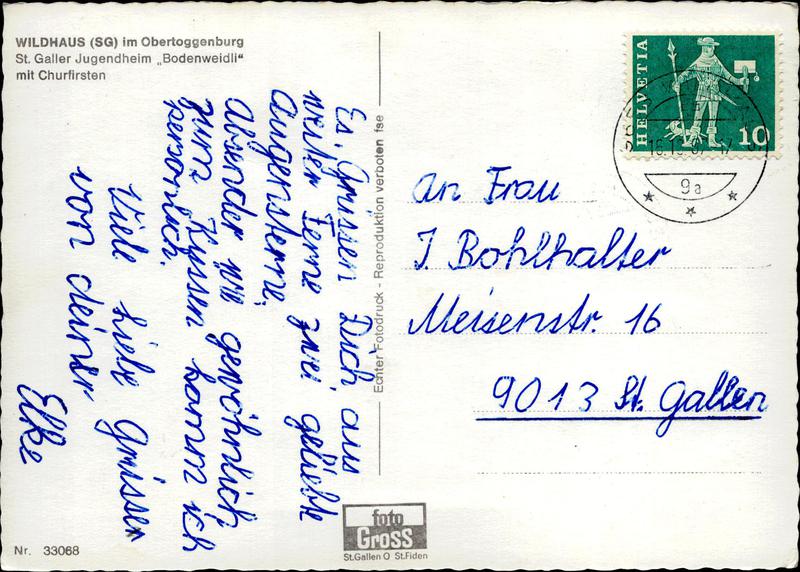 WILDHAUS (SG) im Obertoggenburg
St. Galler Jugendheim „Bodenweidli"
mit Churfirsten
Es, Grüssen Dich aus
weiter Ferne zwei geliebte
Augensterne,
Absender wie gewöhnlich
zum Küssen komm ich
persönlich.
Viele liebe Grüsse
von deiner
Elke
Echter Fotodruck - Reproduktion verboten fse
HELVETIA
10
9a
An Frau
J. Bohlhalter
Meisenstr. 16
9013 St. Gallen
foto
GROSS
St.Gallen O St.Fiden
Nr. 33068